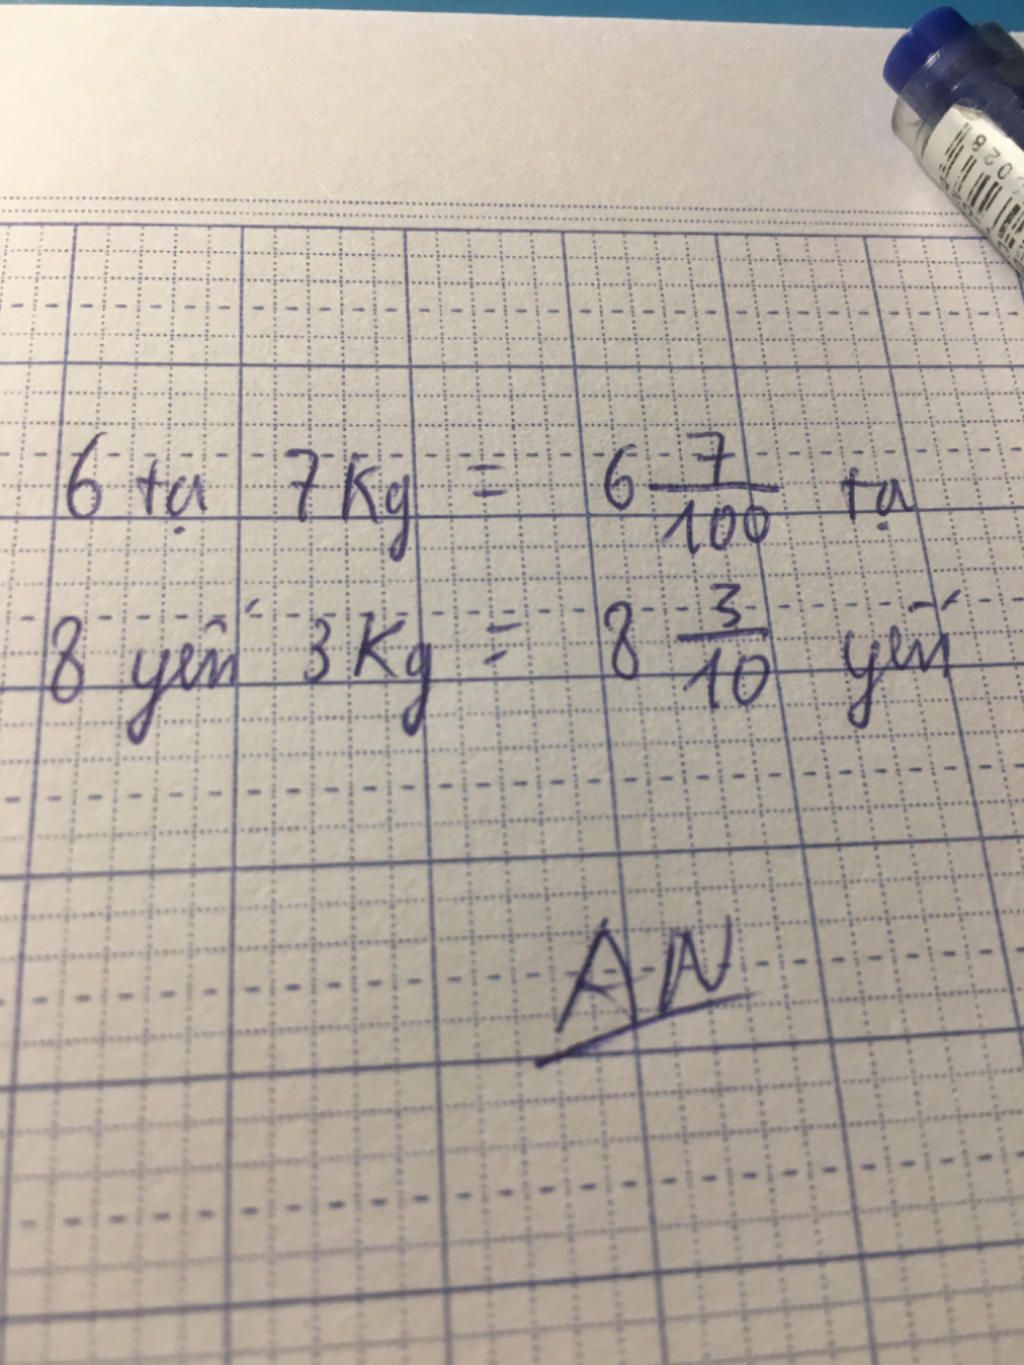 028
6 tạ 7 Kg = 6 7/100 tạ
8 yến 3 Kg = 8 3/10 yến
AN